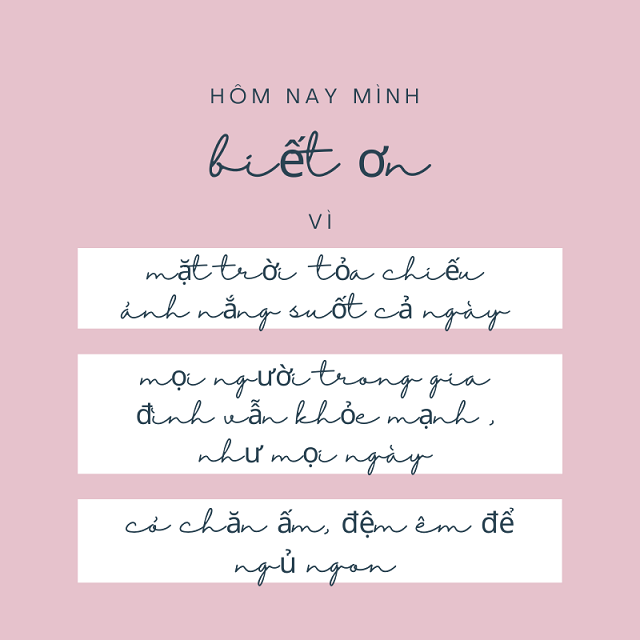 HÔM NAY MÌNH
biết ơn
VÌ
mặt trời tỏa chiếu
ánh nắng suốt cả ngày
mọi người trong gia
đình vẫn khỏe mạnh ,
như mọi ngày
có chăn ấm, đệm êm để
ngủ ngon